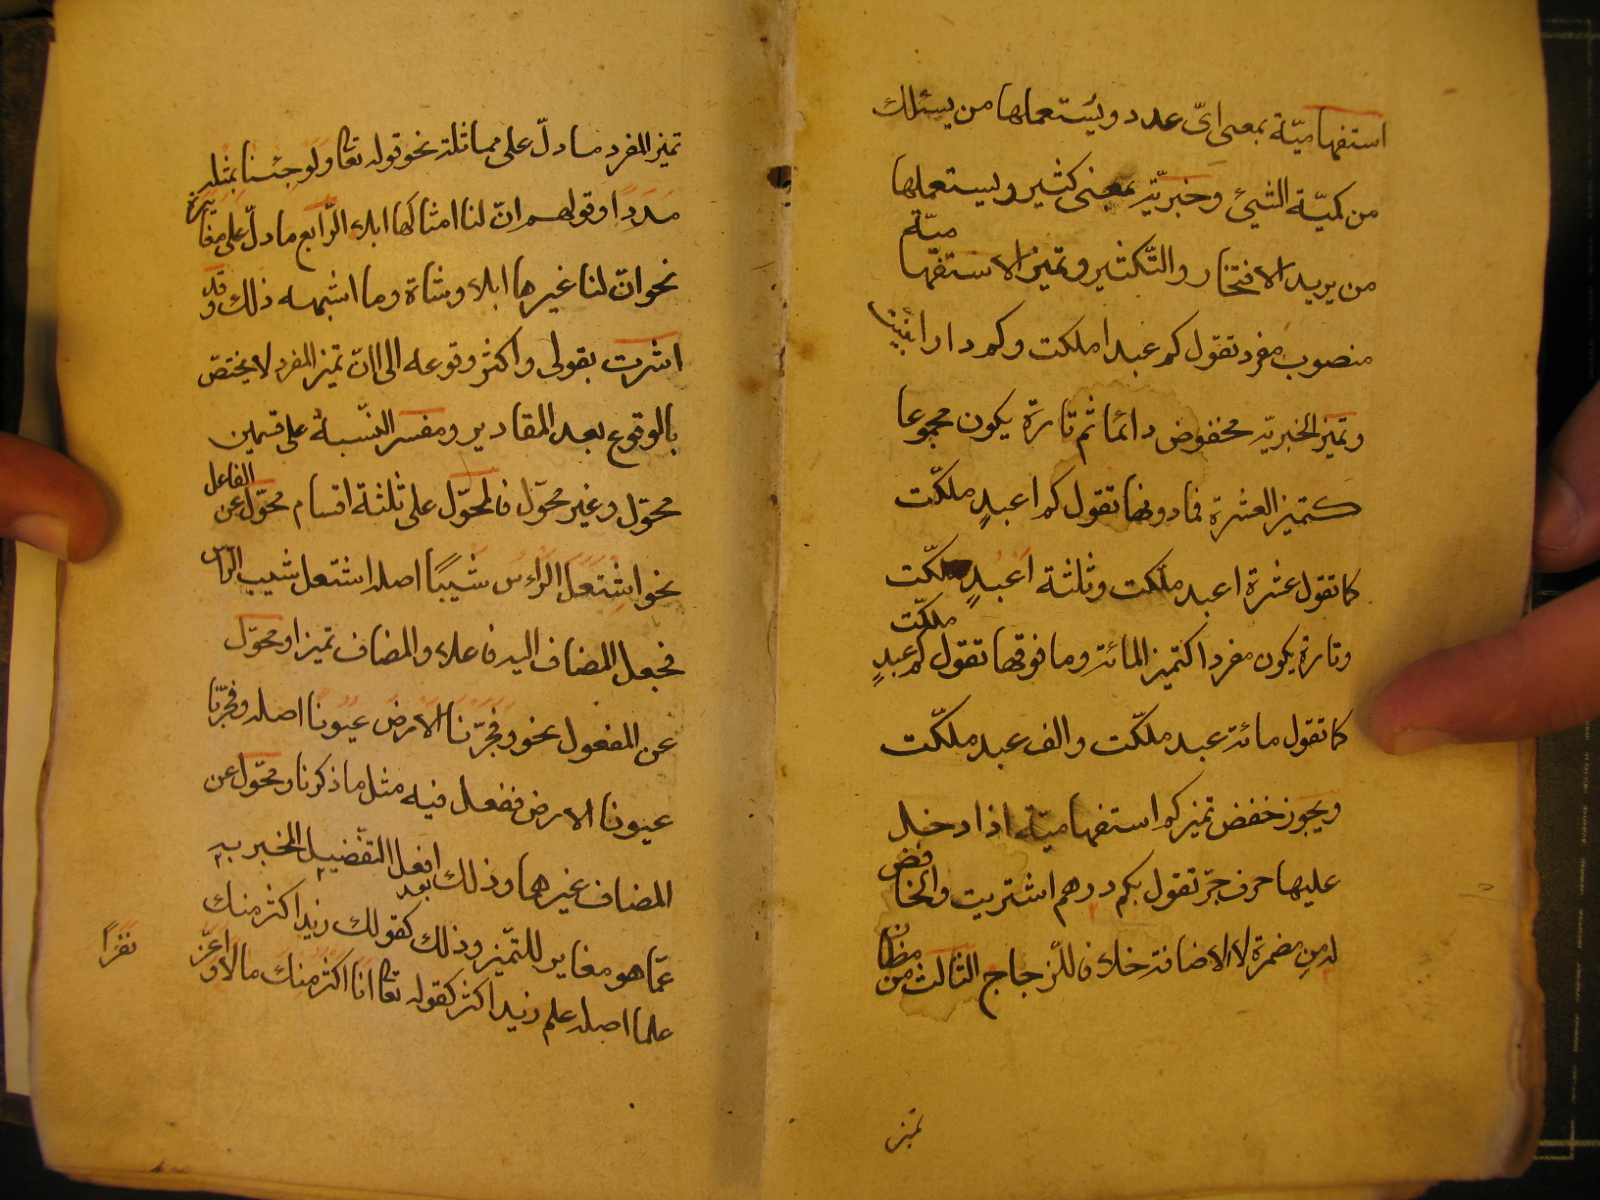 استفهاميّة بمعنى اىّ عدد ويُستعملها من يسئلك
من كميّة الشئ وخبريّة بمعنى كثير ويستعملها
من يريد الافتخار والتّكثير وتميز الاستفهاميّة
منصوب مفرد تقول كم عبدا ملكت وكم دارا بنيت
وتميز الخبريّة مخفوض دائما ثم تارة يكون مجموعا
كتميز العشرة فمادونها تقول كم اعبدٍ ملكت
كما تقول عشرة اعبد ملكت وثلثة اعبدٍ ملكت
وتارة يكون مفردا كتميز المائة وما فوقها تقول كم عبدٍ ملكت
كما تقول مائة عبد ملكت والف عبد ملكت
ويجوز خفض تميز كم استفهاميّة اذا دخل
عليها حرف جرّ تقول بكم درهم اشتريت والخافض
له من مضمرة لا الاضافة خلافا للزجاج الثالث من مظان
تميز
تميز المفرد ما دلّ على مماثلة نحو قوله تعا ولو جئنا بمثله
مددًا وقولهم انّ لنا امثالها ابلا الرّابع ما دلّ على مغايرة
نحو انّ لنا غيرها ابلا وشاة وما اشبهه ذلك وقد
اشرت بقولى واكثر وقوعه الى انّ تميز المفرد لا يختصّ
بالوقوع بعد المقادير ومفسر النّسبة على قسمين
محوّل وغير محوّل فالمحوّل على ثلثة اقسام محوّل عن الفاعل
نحو اشتعل الرأس شَيبًا اصله اشتعل شيب الرأس
فجعل المضاف اليه فاعلا والمضاف تميزا ومحوّل
عن المفعول نحو وفجّرنا الارض عيونا اصله وفجّرنا
عيونا الارض ففعل فيه مثل ما ذكرنا ومحوّل عن
المضاف غيرهما وذلك بعد افعل التفضيل المخبر به
عمّا هو مغاير للتّميز وذلك كقولك زيد اكثر منك
علما اصله علم زيد اكثر كقوله تعا انا اكثر منك مالا واعزّ
نفرًا